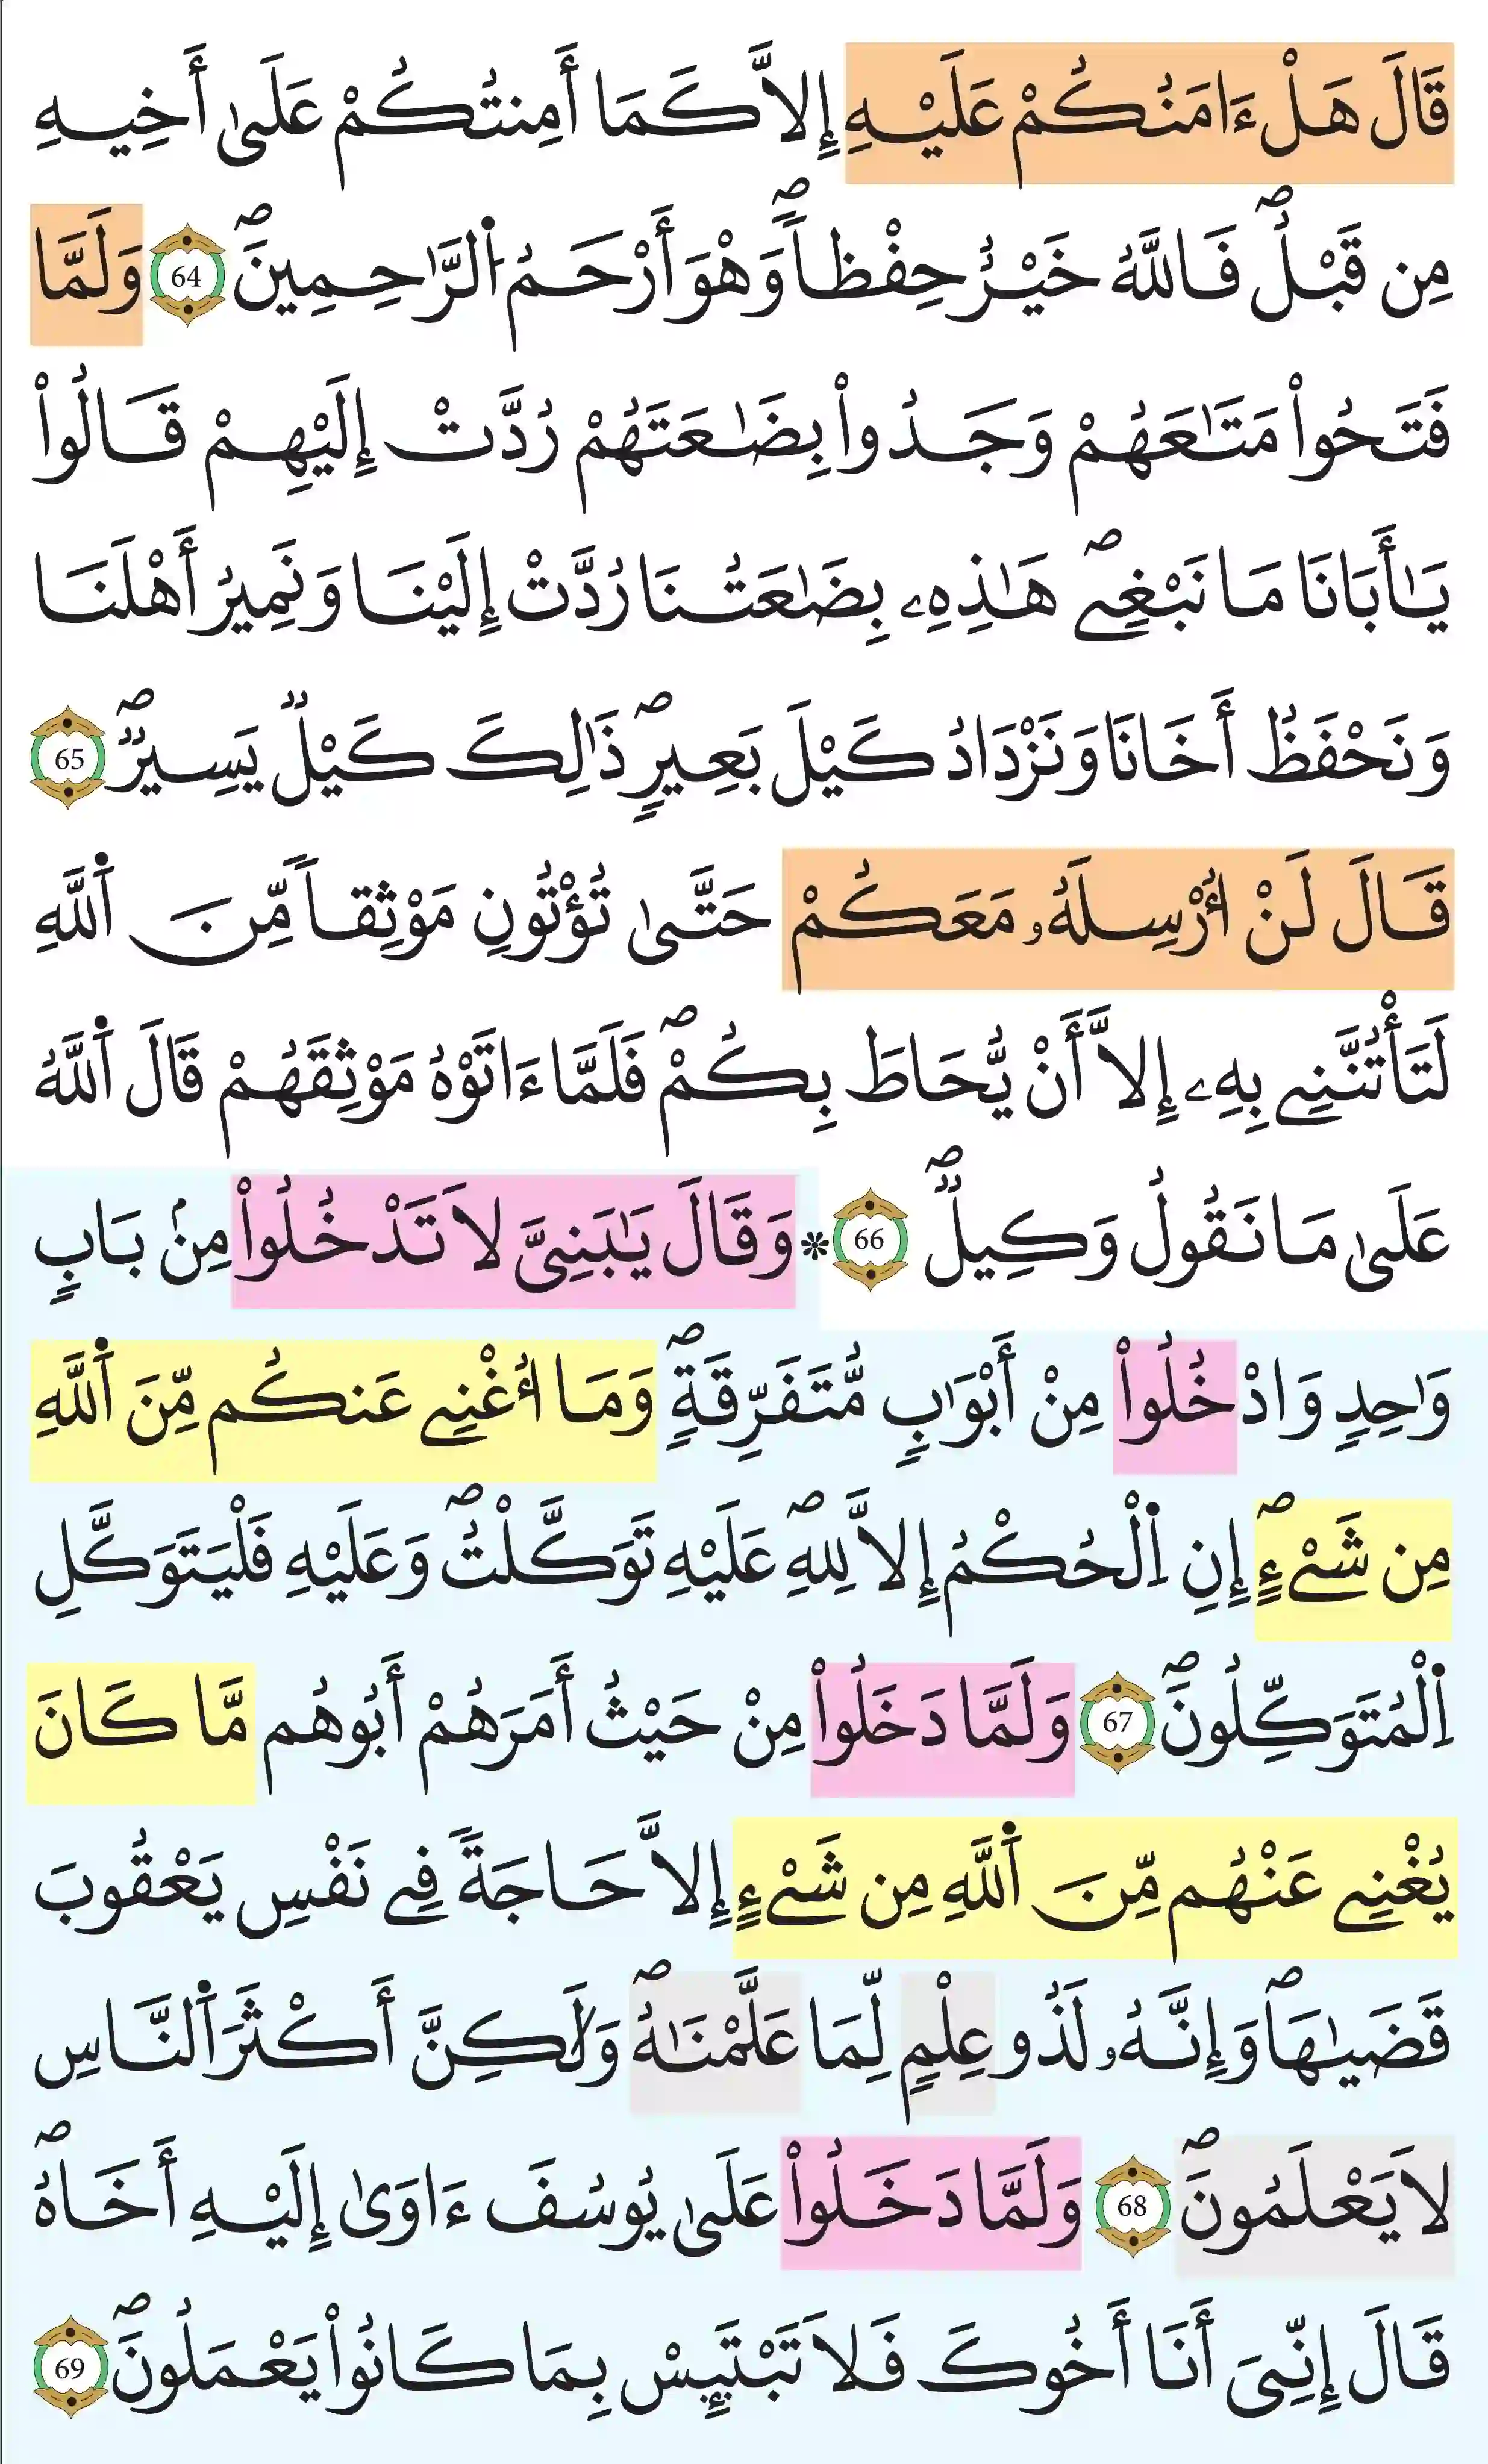 قَالَ هَلْ ءَامَنُكُمْ عَلَيْهِ إِلاَّ كَمَا أَمِنتُكُمْ عَلَىٰ أَخِيهِ
مِن قَبْلُۖ فَاللَّهُ خَيْرٌ حِفْظاًۖ وَهْوَ أَرْحَمُ اُ۬لرَّٰحِمِينَۖ 64 وَلَمَّا
فَتَحُواْ مَتَٰعَهُمْ وَجَدُواْ بِضَٰعَتَهُمْ رُدَّتْ إِلَيْهِمْ قَالُواْ
يَٰأَبَانَا مَا نَبْغِےۖ هَٰذِهِۦ بِضَٰعَتُنَا رُدَّتْ إِلَيْنَا وَنَمِيرُ أَهْلَنَا
وَنَحْفَظُ أَخَانَا وَنَزْدَادُ كَيْلَ بَعِيرٍۖ ذَٰلِكَ كَيْلٌ يَسِيرٌۖ 65
قَالَ لَنْ أُرْسِلَهُۥ مَعَكُمْ حَتَّىٰ تُؤْتُونِ مَوْثِقاً مِّنَ اَ۬للَّهِ
لَتَأْتُنَّنِے بِهِۦ إِلاَّ أَنْ يُّحَاطَ بِكُمْۖ فَلَمَّا ءَاتَوْهُ مَوْثِقَهُمْ قَالَ اَ۬للَّهُ
عَلَىٰ مَا نَقُولُ وَكِيلٌۖ 66 * وَقَالَ يَٰبَنِيَّ لاَ تَدْخُلُواْ مِنۢ بَابٍ
وَٰحِدٍ وَادْخُلُواْ مِنْ أَبْوَٰبٍ مُّتَفَرِّقَةٍۖ وَمَا أُغْنِے عَنكُم مِّنَ اَ۬للَّهِ
مِن شَےْءٍۖ إِنِ اِ۬لْحُكْمُ إِلاَّ لِلهِۖ عَلَيْهِ تَوَكَّلْتُۖ وَعَلَيْهِ فَلْيَتَوَكَّلِ
اِ۬لْمُتَوَكِّلُونَۖ 67 وَلَمَّا دَخَلُواْ مِنْ حَيْثُ أَمَرَهُمْ أَبُوهُم مَّا كَانَ
يُغْنِے عَنْهُم مِّنَ اَ۬للَّهِ مِن شَےْءٍ إِلاَّ حَاجَةً فِے نَفْسِ يَعْقُوبَ
قَضَيٰهَاۖ وَإِنَّهُۥ لَذُو عِلْمٍ لِّمَا عَلَّمْنَٰهُۖ وَلَٰكِنَّ أَكْثَرَ اَ۬لنَّاسِ
لاَ يَعْلَمُونَۖ 68 وَلَمَّا دَخَلُواْ عَلَىٰ يُوسُفَ ءَاوَىٰ إِلَيْهِ أَخَاهُۖ
قَالَ إِنِّيَ أَنَا أَخُوكَ فَلاَ تَبْتَئِسْ بِمَا كَانُواْ يَعْمَلُونَۖ 69